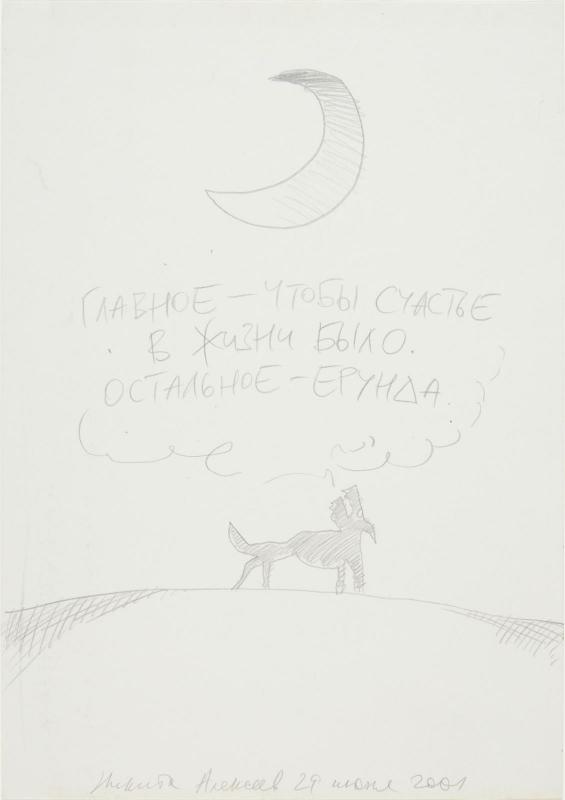 ГЛАВНОЕ — ЧТОБЫ СЧАСТЬЕ
В ЖИЗНИ БЫЛО.
ОСТАЛЬНОЕ – ЕРУНДА.
Никита Алексеев 29 июня 2001